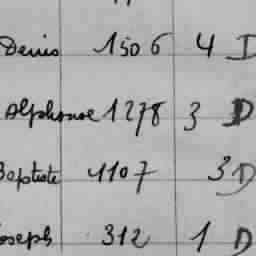 Denis 1506 4 D
Alphonse 1278 3 D
Baptiste 1107 3 D
Joseph 312 1 D